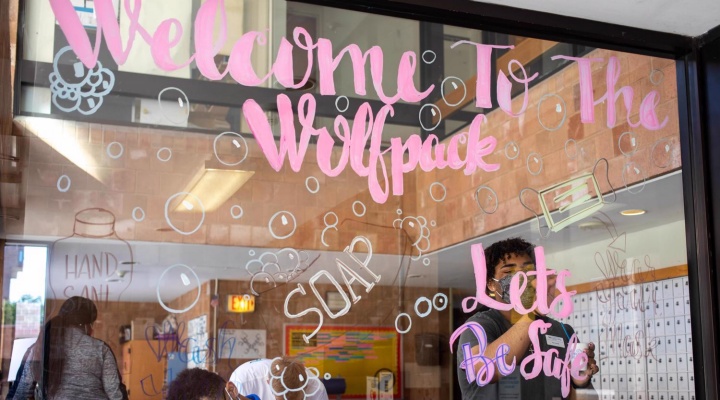 Welcome To The
Wolfpack
HAND
SANI
SOAP
EXIT
Lets
Be Safe